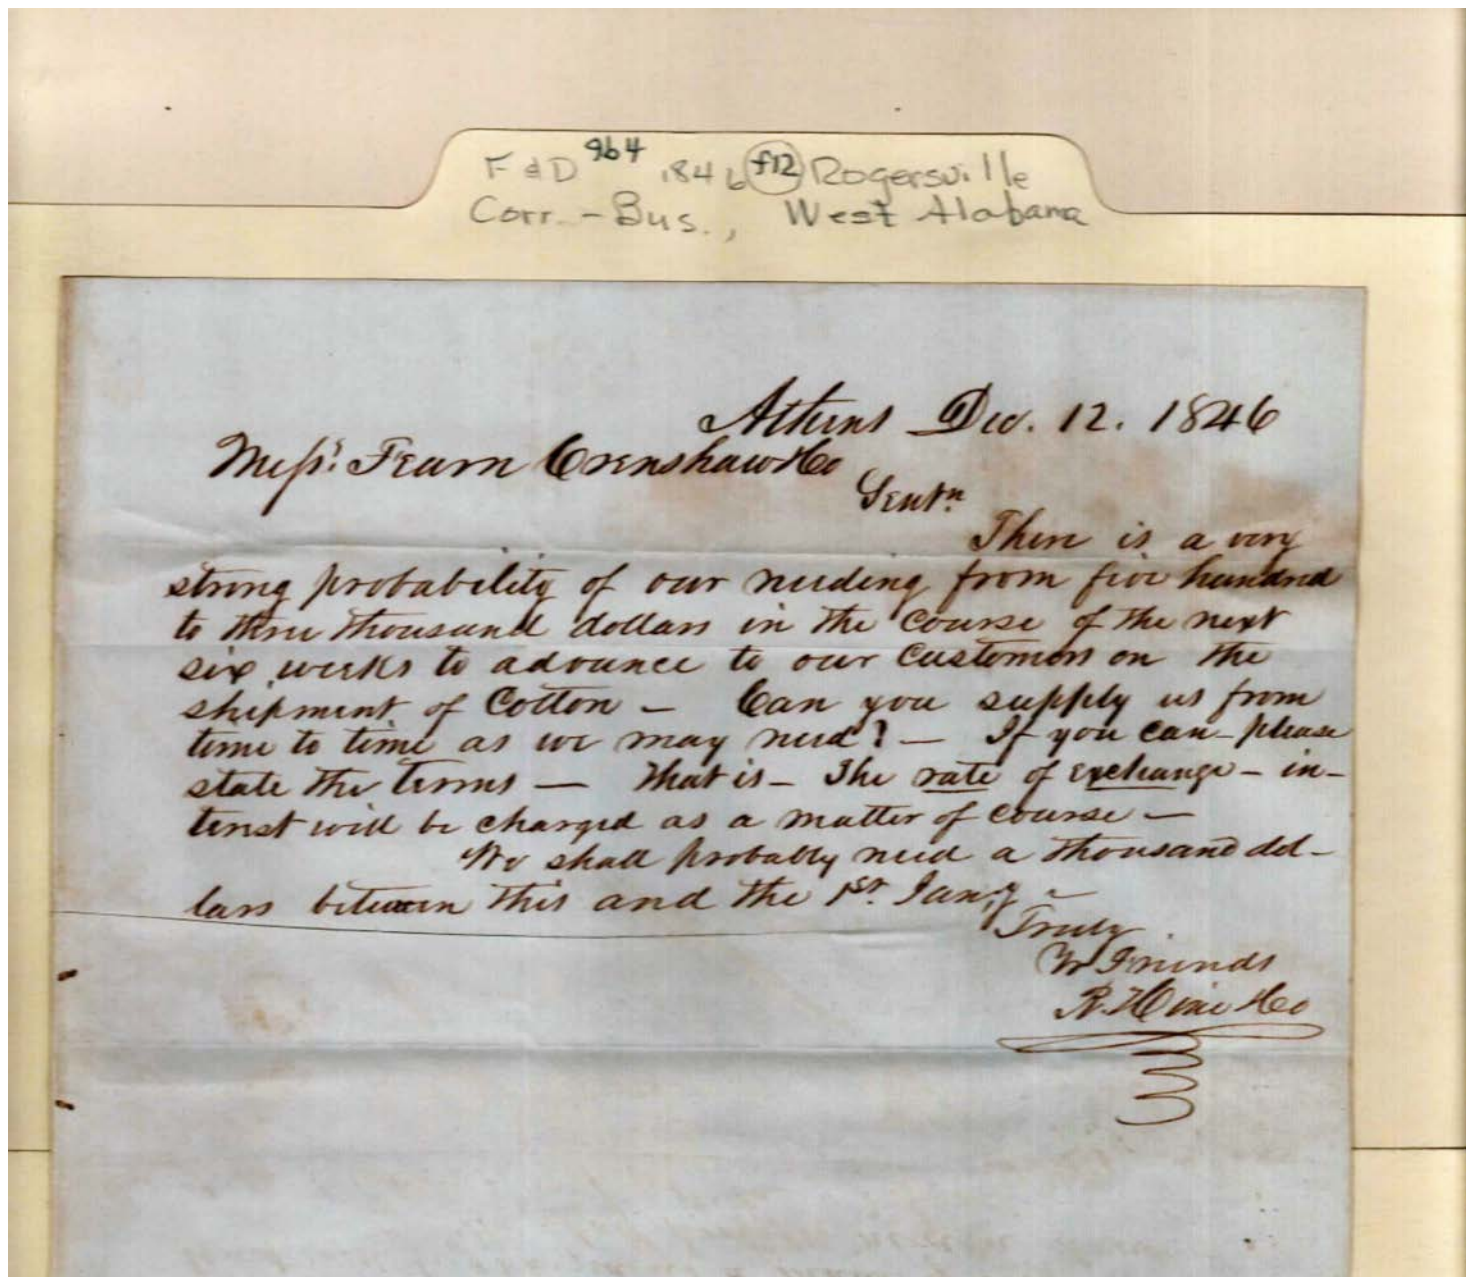 F & D 964 1846 f12 Rogersville
Corr. - Bus., West Alabama
Athens Dec. 12. 1846
Messrs. Fearn Crenshaw & Co
Gentn.
There is a very
strong probability of our needing from five hundred
to three thousand dollars in the course of the next
six weeks to advance to our customers on the
shipment of Cotton — Can you supply us from
time to time as we may need? — If you can please
state the terms — that is — The rate of exchange — in-
terest will be charged as a matter of course —
We shall probably need a thousand dol-
lars between this and the 1st. Jany —
Truly
Yr Friends
R. Hine & Co